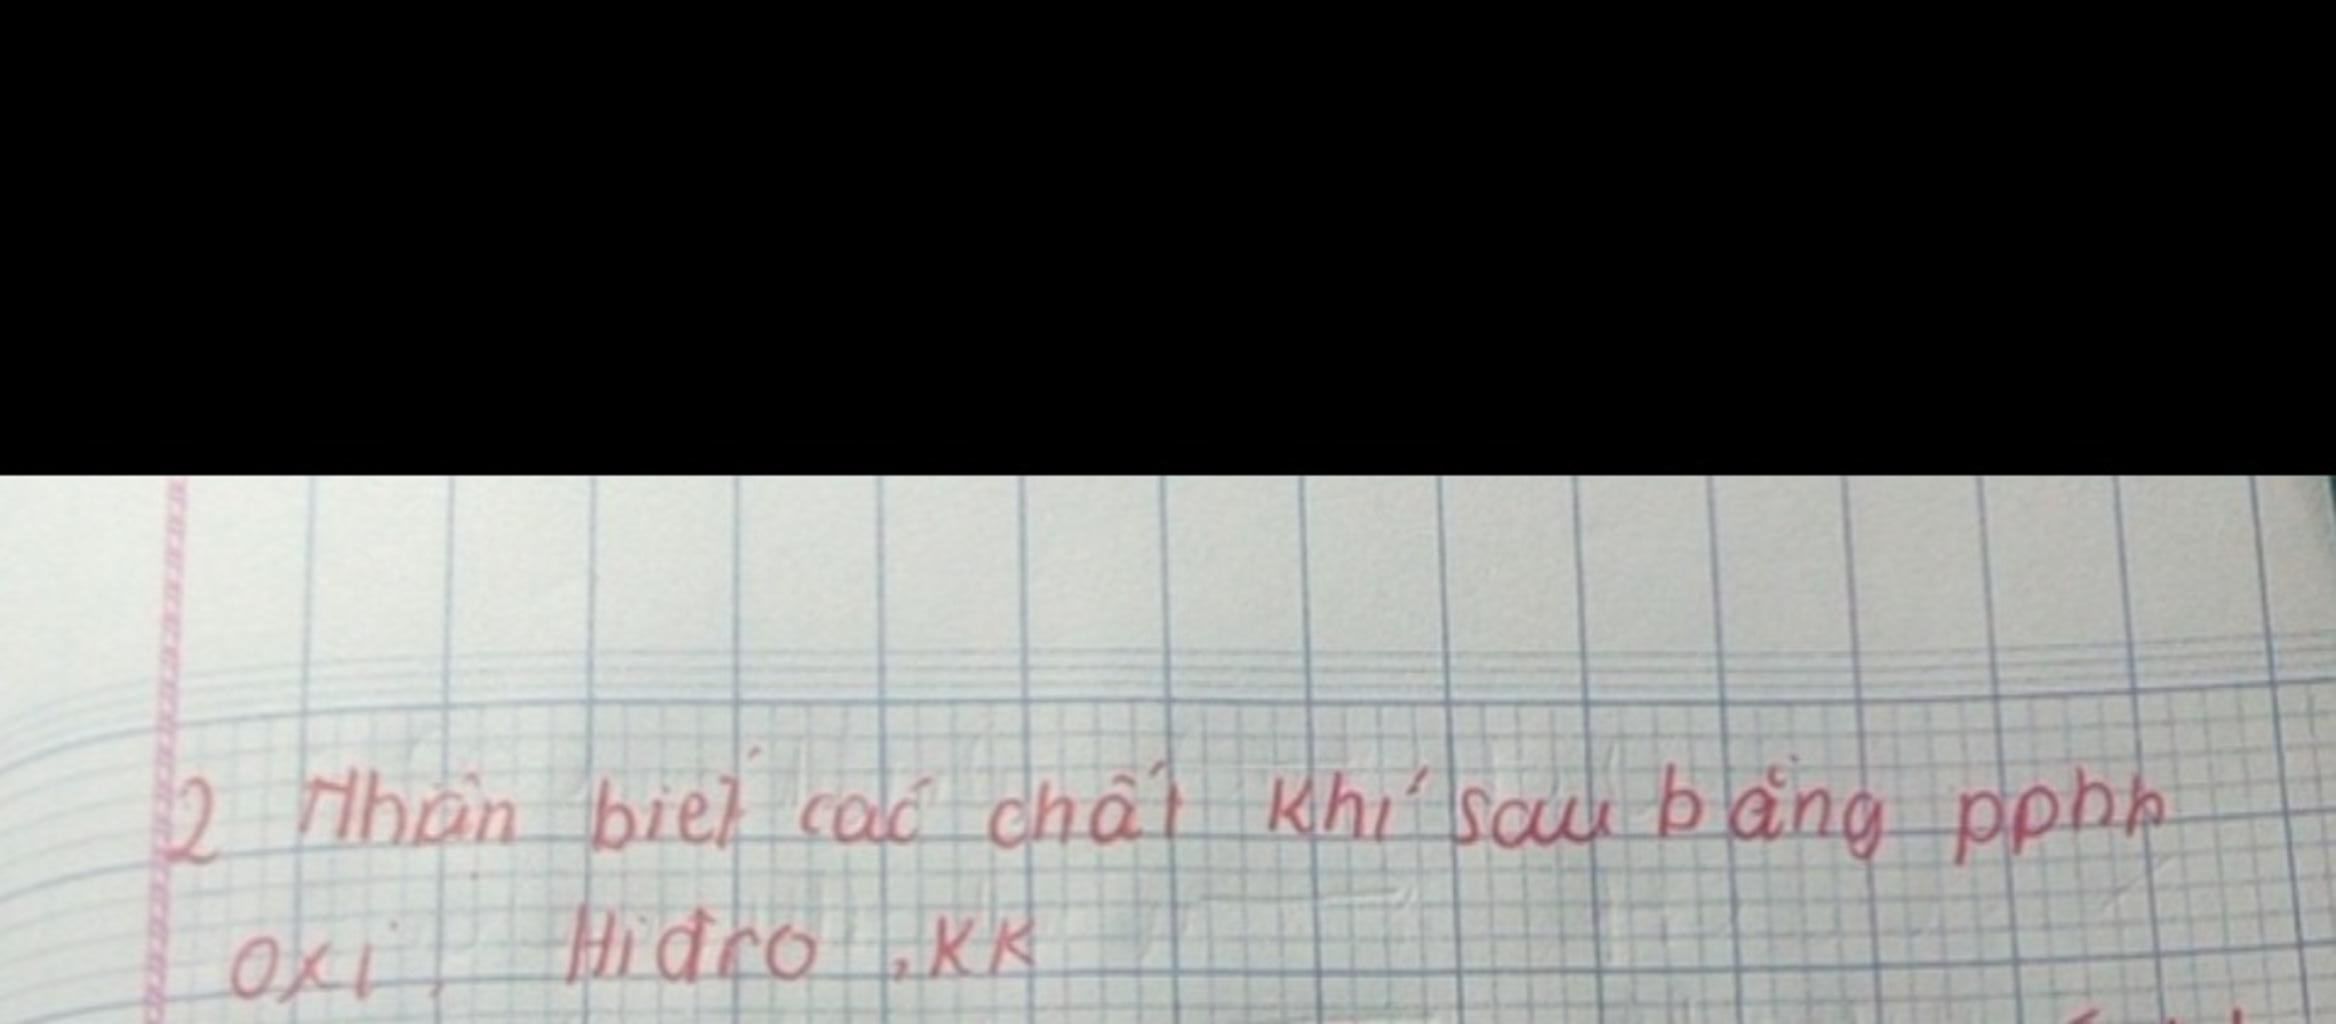 2 Nhân biết các chất khí sau bằng pphh
oxi, Hiđro, KK